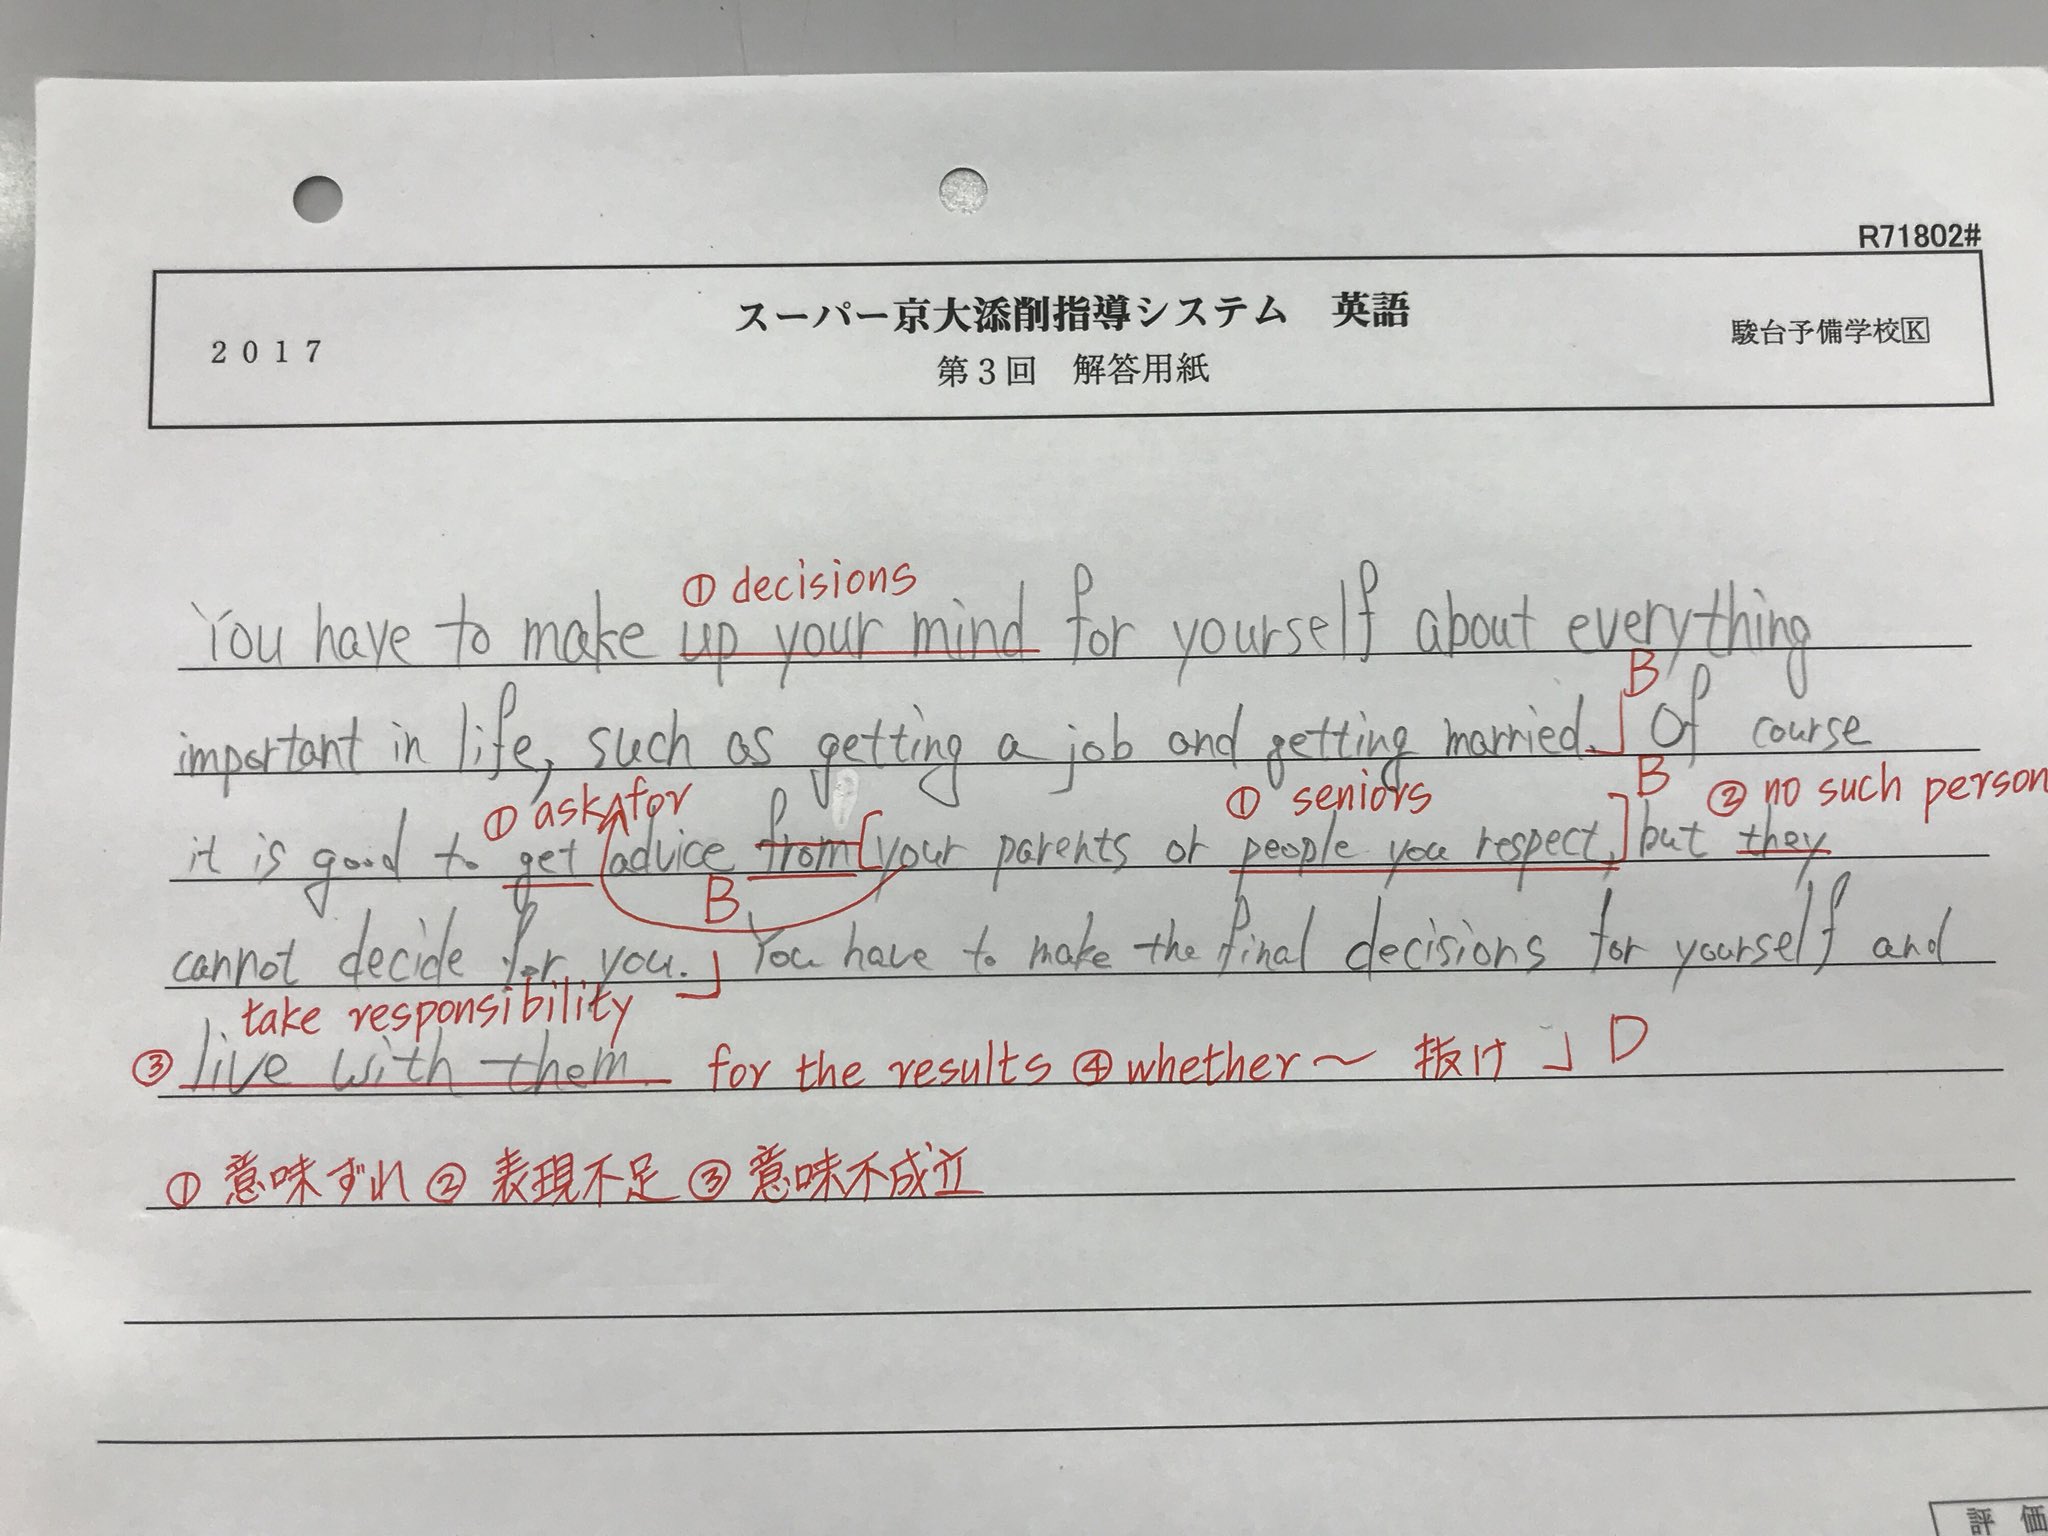 R71802#
2017
スーパー京大添削指導システム 英語
第3回 解答用紙
駿台予備学校K
① decisions
You have to make up your mind for yourself about everything
B
important in life, such as getting a job and getting married.」 Of course
① ask for ① seniors B ② no such person
it is good to get advice from [your parents or people you respect,] but they
B
cannot decide for you.」 You have to make the final decisions for yourself and
take responsibility
③ live with them. for the results ④ whether〜 抜け 」 D
① 意味ずれ ② 表現不足 ③ 意味不成立
評価